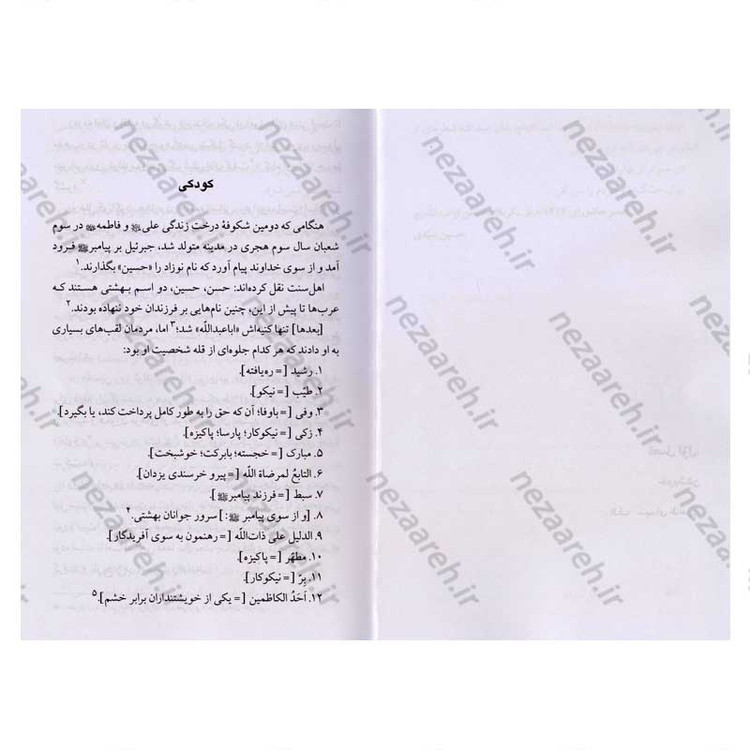 کودکی
هنگامی که دومین شکوفهٔ درخت زندگی علی و فاطمه در سوم
شعبان سال سوم هجری در مدینه متولد شد، جبرئیل بر پیامبرﷺ فرود
آمد و از سوی خداوند پیام آورد که نام نوزاد را «حسین» بگذارند.۱
اهل‌سنت نقل کرده‌اند: حسن، حسین، دو اسم بهشتی هستند که
عرب‌ها تا پیش از این، چنین نام‌هایی بر فرزندان خود ننهاده بودند.۲
[بعدها] تنها کنیه‌اش «اباعبداللّه» شد؛۳ اما، مردمان لقب‌های بسیاری
به او دادند که هر کدام جلوه‌ای از قله شخصیت او بود:
۱. رشید [= ره‌یافته].
۲. طیّب [= نیکو].
۳. وفی [= باوفا؛ آن که حق را به طور کامل پرداخت کند، یا بگیرد].
۴. زکی [= نیکوکار؛ پارسا؛ پاکیزه].
۵. مبارک [= خجسته؛ بابرکت؛ خوشبخت].
۶. التابعُ لمرضاة اللّه [= پیرو خرسندی یزدان].
۷. سبط [= فرزندِ پیامبرﷺ].
۸. [و از سوی پیامبر ﷺ:] سرور جوانان بهشتی.۴
۹. الدلیل علی ذات‌اللّه [= رهنمون به سوی آفریدگار].
۱۰. مطهّر [= پاکیزه].
۱۱. بِرّ [= نیکوکار].
۱۲. اَحَدُ الکاظمین [= یکی از خویشتنداران برابر خشم].۵
nezaareh.ir
nezaareh.ir
nezaareh.ir
nezaareh.ir
nezaareh.ir
nezaareh.ir
nezaareh.ir
nezaareh.ir
nezaareh.ir